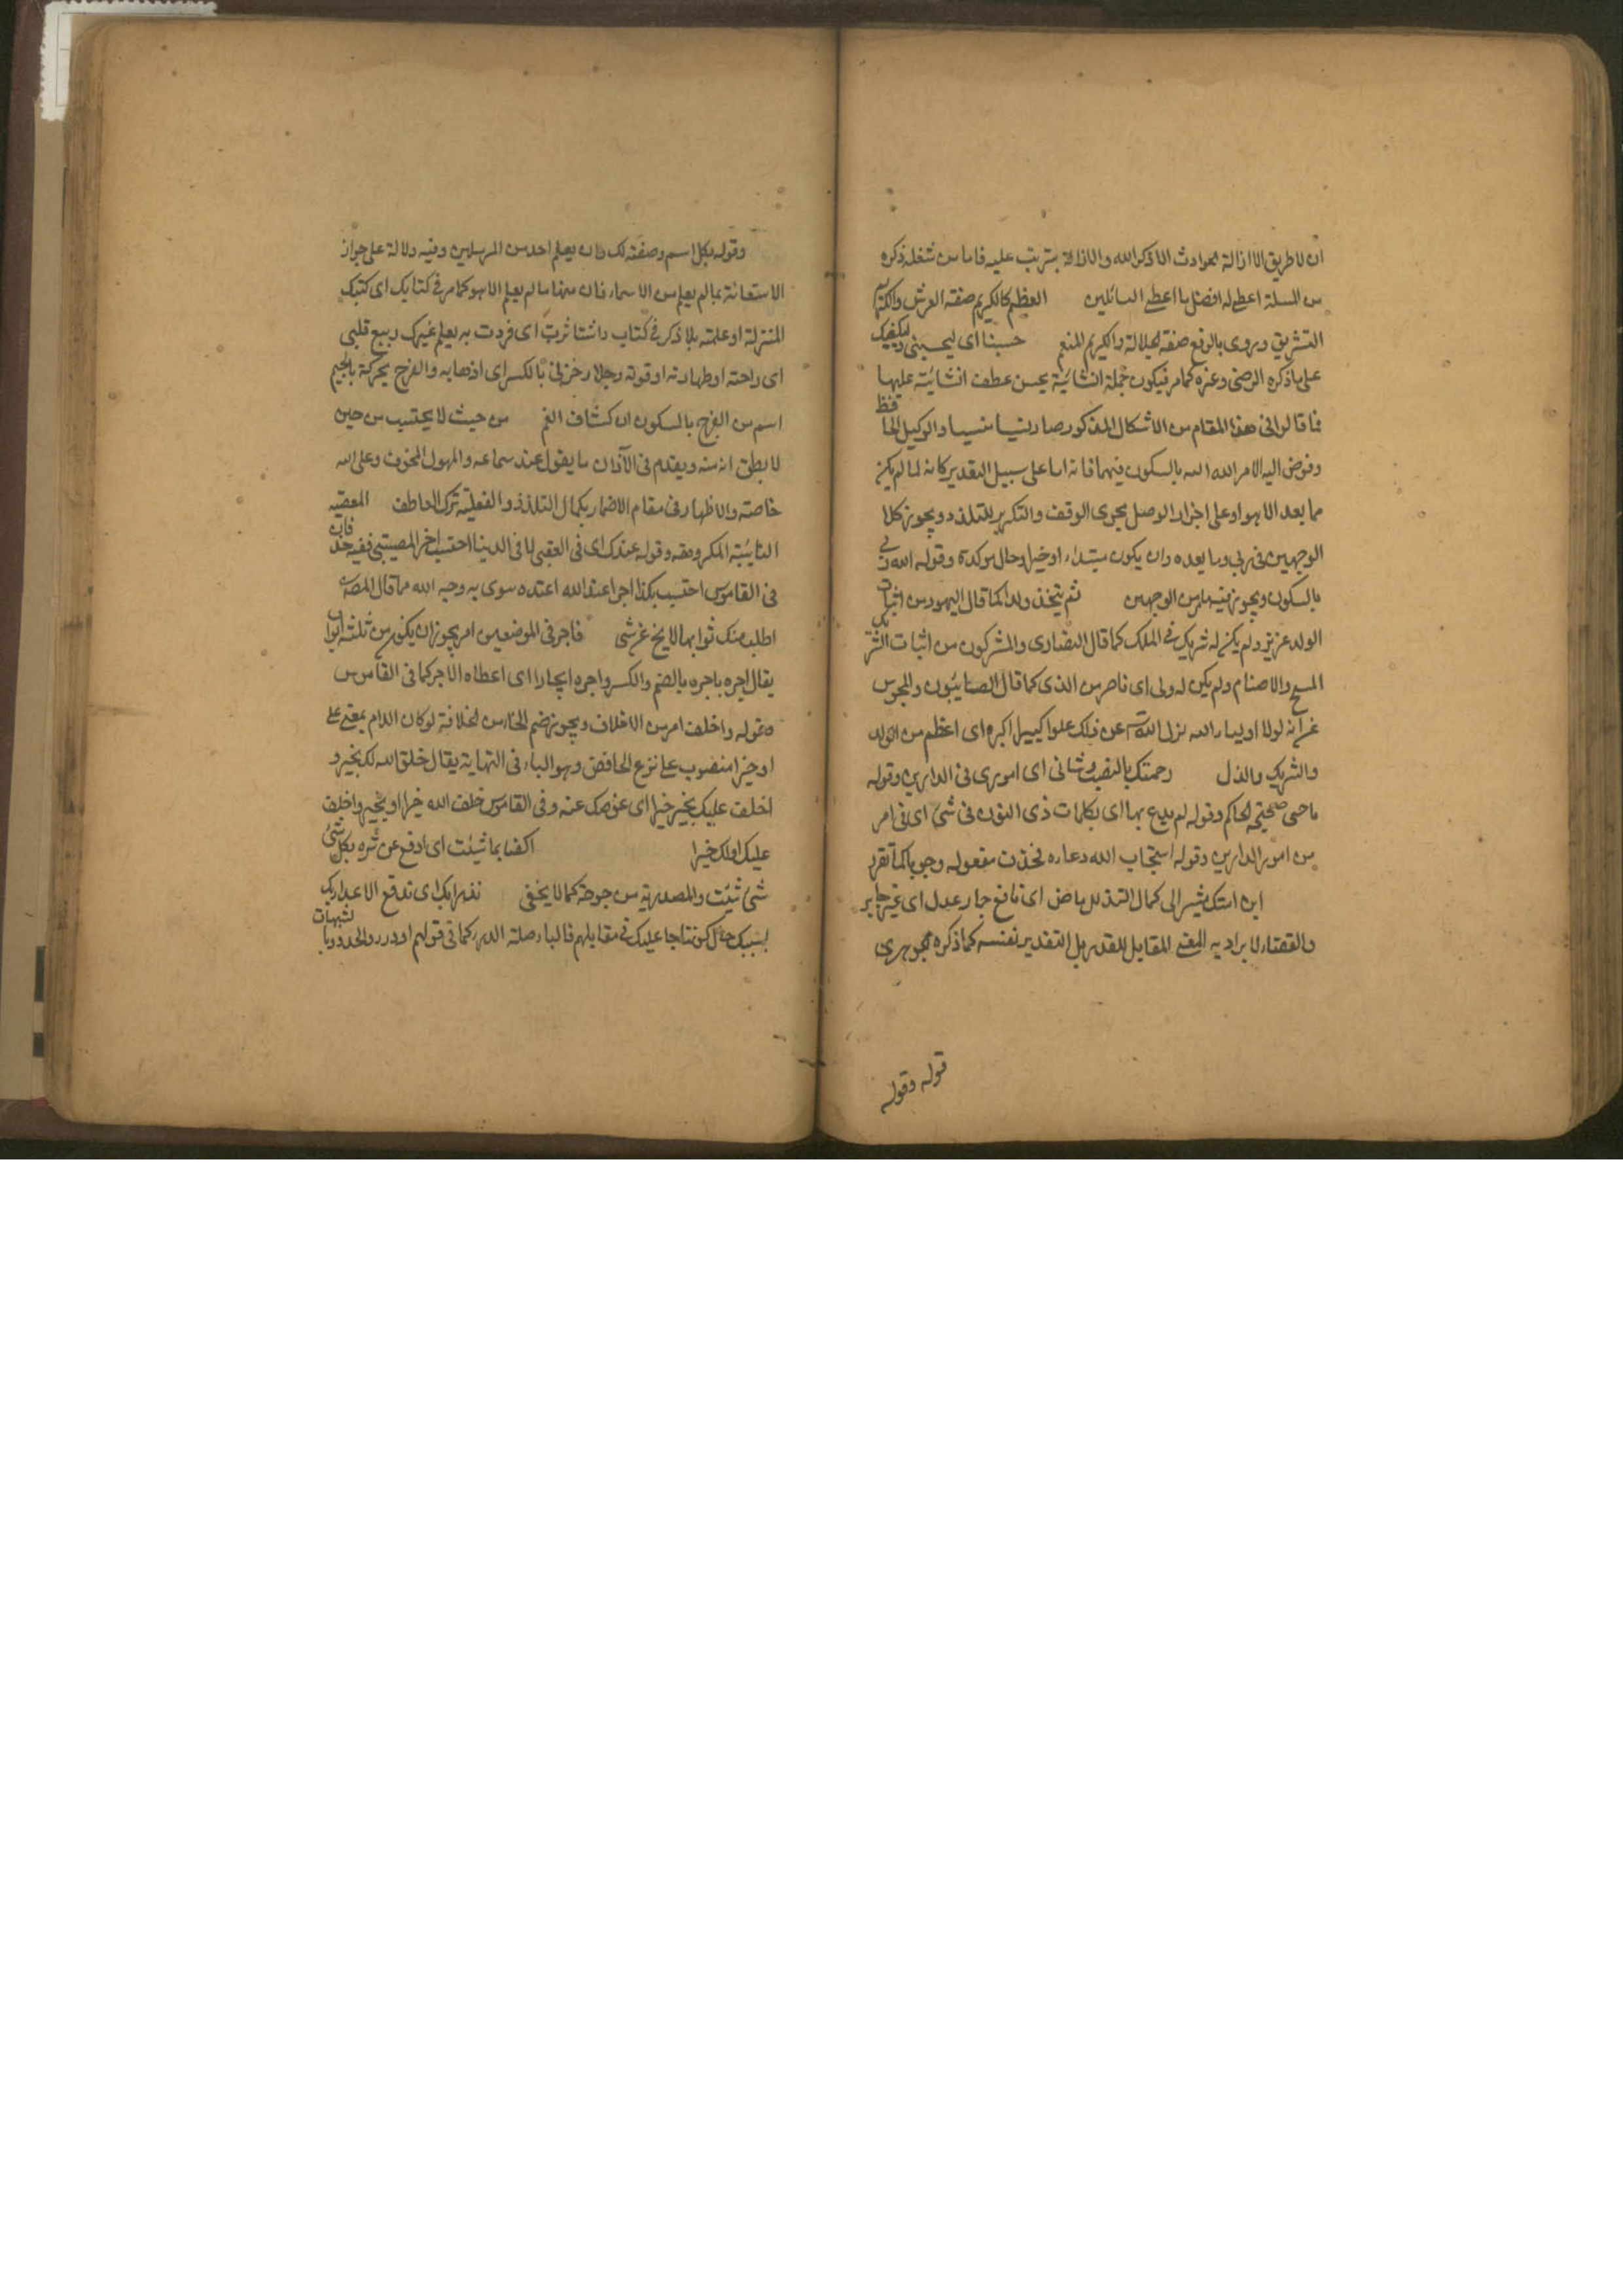 ان لا طريق الا ازالة الحوادث الا ذكر الله والازالة يترتب عليه فاما من شغله ذكره
من المسئلة اعطى له افضل ما اعطى السائلين العظيم كالكريم صفة العرش والكرم
التشريق ويروى بالرفع صفة للجلالة والكريم المنعم حسبنا اى ليحسبنى ويكفيك
على ما ذكره الرضى وغيره كما مر فيكون جملة انشائية يحسن عطف انشائية عليها
فما قالوا فى هذا المقام من الاشكال المذكور صار نسيا منسيا والوكيل الحافظ
وفوض اليه الامر الله الله بالسكون فيهما فانه اما على سبيل التقدير كانه لما لم يكن
مما بعد الا هو او على اجراء الوصل مجرى الوقف والتكرير للتلذذ ويجوز كلا
الوجهين فى ربى وما بعده وان يكون مبتداء او خبرا وحال موكدة وقوله الله ربى
بالسكون ويجوز فيه ما من الوجهين ثم يتخذ ولدا كما قال اليهود من اثبات
الولد عزيز ولم يكن له شريك فى الملك كما قال النصارى والمشركون من اثبات الشريك
المسيح والاصنام ولم يكن له ولى اى ناصر من الذى كما قال الصابئون والمجوس
عن انه لولا اولياء الله نزل الله عن ذلك علوا كبيرا اكبره اى اعظم من الولد
والشريك والذل رحمتك بالنصب وشانى اى امورى فى الدارين وقوله
ما حى صححه الحاكم وقوله لم يدع بها اى بكلمات ذى النون فى شئ اى فى امر
من امور الدارين وقوله استجاب الله دعاءه فحذف مفعوله وجوبا كما تقرر
ابن امتك يشير الى كمال التذلل ماض اى نافع جار عدل اى غير جابر
والقضاء لا يراد به المعنى المقابل للقدر بل التقدير نفسه كما ذكره الجوهرى
قوله وقوله
وقوله بكل اسم وصفته لك وان يعلم احد من المرسلين وفيه دلالة على جواز
الاستعانة بما لم يعلم من الاسماء فان منها ما لم يعلم الا هو كما مر فى كتابك اى كتبك
المنزلة او علمته بلا ذكر فى كتاب واستاثرت اى فردت به بعلم غيرك ربيع قلبى
اى راحته او طهارته او قوته وجلاء حزنى بالكسر اى اذهابه والفرج بحركة بالجيم
اسم من الفرج بالسكون اى كشاف الغم من حيث لا يحتسب من حين
لا يظن انه منه ويقدم فى الآذان ما يقول عند سماعه والمهول المخوف وعلى الله
خاصة والاظهار فى مقام الاضمار بكمال التلذذ والفعلية ترك العاطف المصيبة
النائبة المكروهة وقوله عندك اى فى العقبى لا فى الدنيا احتسب اخر المصيبتى ففيه حذف فان
فى القاموس احتسب بكذا اجرا عند الله اعتده سوى به وجه الله مما قال المصنف
اطلب منك ثوابها لا يخ عن شى فاجر فى الموضعين امر يجوز ان يكون من ثلثة ابواب
يقال اجره ياجره بالضم والكسر واجره ايجارا اى اعطاه الاجر كما فى القاموس
وقوله واخلف امر من الاخلاف ويجوز بضم الخاء من الخلافة لو كان اللام بمعنى على
او خيرا منصوب على نزع الخافض وهو الباء فى النهاية يقال خلف الله لك بخير و
اخلف عليك بخير خيرا اى عوضك عنه وفى القاموس خلف الله خيرا او بخير واخلف
عليك اولك خيرا اكفنا بما شئت اى ادفع عن شره بكل شئ
شئ شئت والمصدرية مرجوحة كما لا يخفى نقهر بك اى تدفع الاعداء بك
بسببك حال كوننا جاعليك فى مقابلهم فالباء صلة الدرء كما فى قولهم ادرءوا الحدود بالشبهات